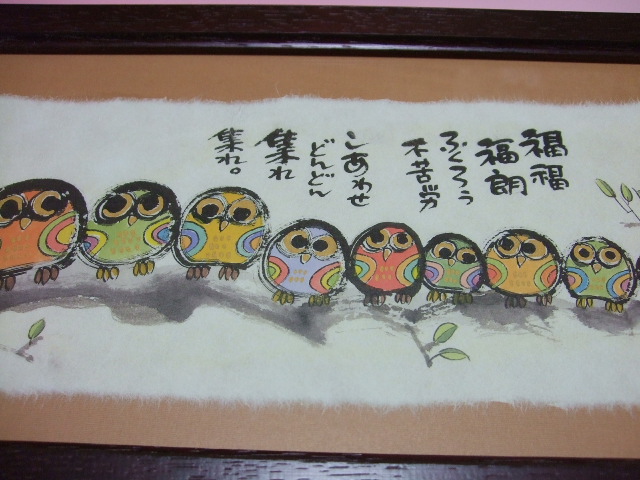 福福
福朗
ふくろう
不苦労
しあわせ
どんどん
集れ
集れ。